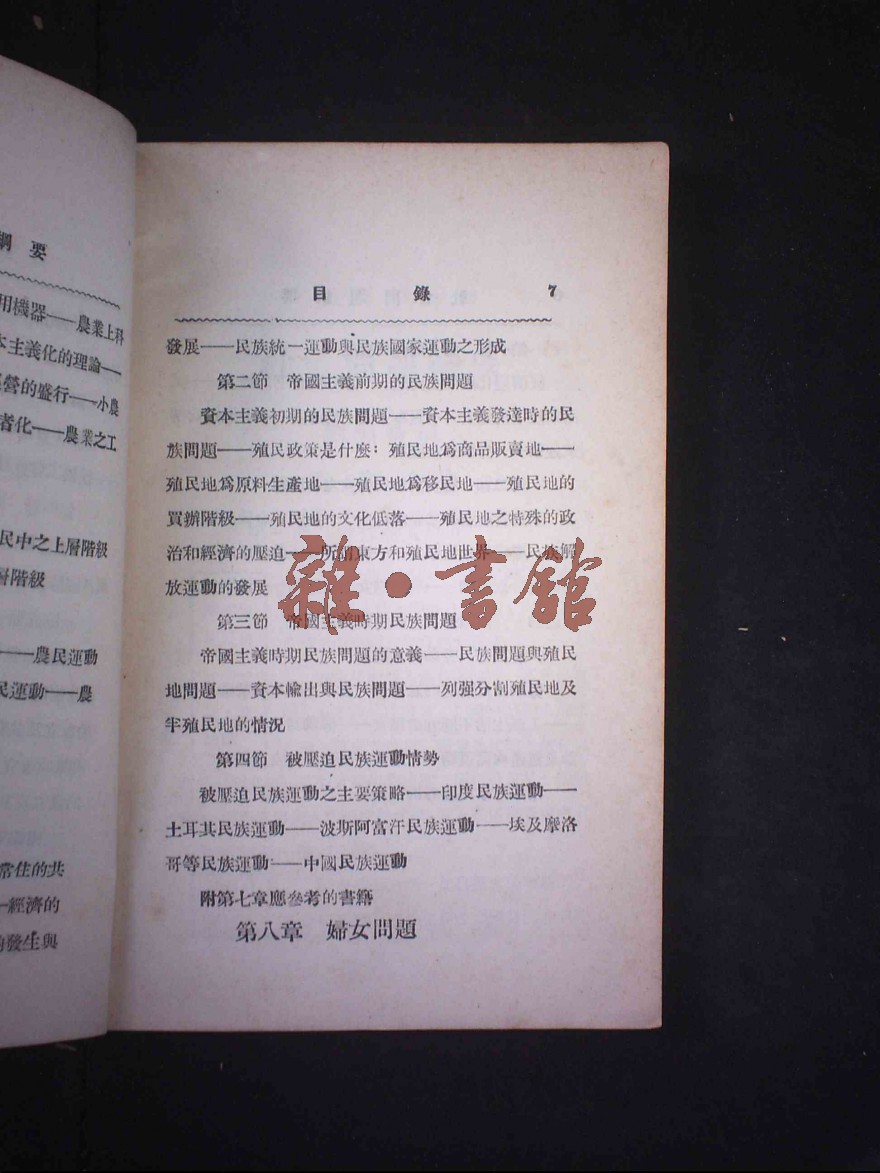 綱要
用機器——農業上科
本主義化的理論——
營的盛行——小農
者化——農業之工
民中之上層階級
層階級
——農民運動
民運動——農
常住的共
—經濟的
的發生與
目錄 7
發展——民族統一運動與民族國家運動之形成
第二節 帝國主義前期的民族問題
資本主義初期的民族問題——資本主義發達時的民
族問題——殖民政策是什麼：殖民地爲商品販賣地——
殖民地爲原料生產地——殖民地爲移民地——殖民地的
買辦階級——殖民地的文化低落——殖民地之特殊的政
治和經濟的壓迫——所謂東方和殖民地世界——民族解
放運動的發展
第三節 帝國主義時期民族問題
帝國主義時期民族問題的意義——民族問題與殖民
地問題——資本輸出與民族問題——列强分割殖民地及
半殖民地的情況
第四節 被壓迫民族運動情勢
被壓迫民族運動之主要策略——印度民族運動——
土耳其民族運動——波斯阿富汗民族運動——埃及摩洛
哥等民族運動——中國民族運動
附第七章應參考的書籍
第八章 婦女問題
雜·書館